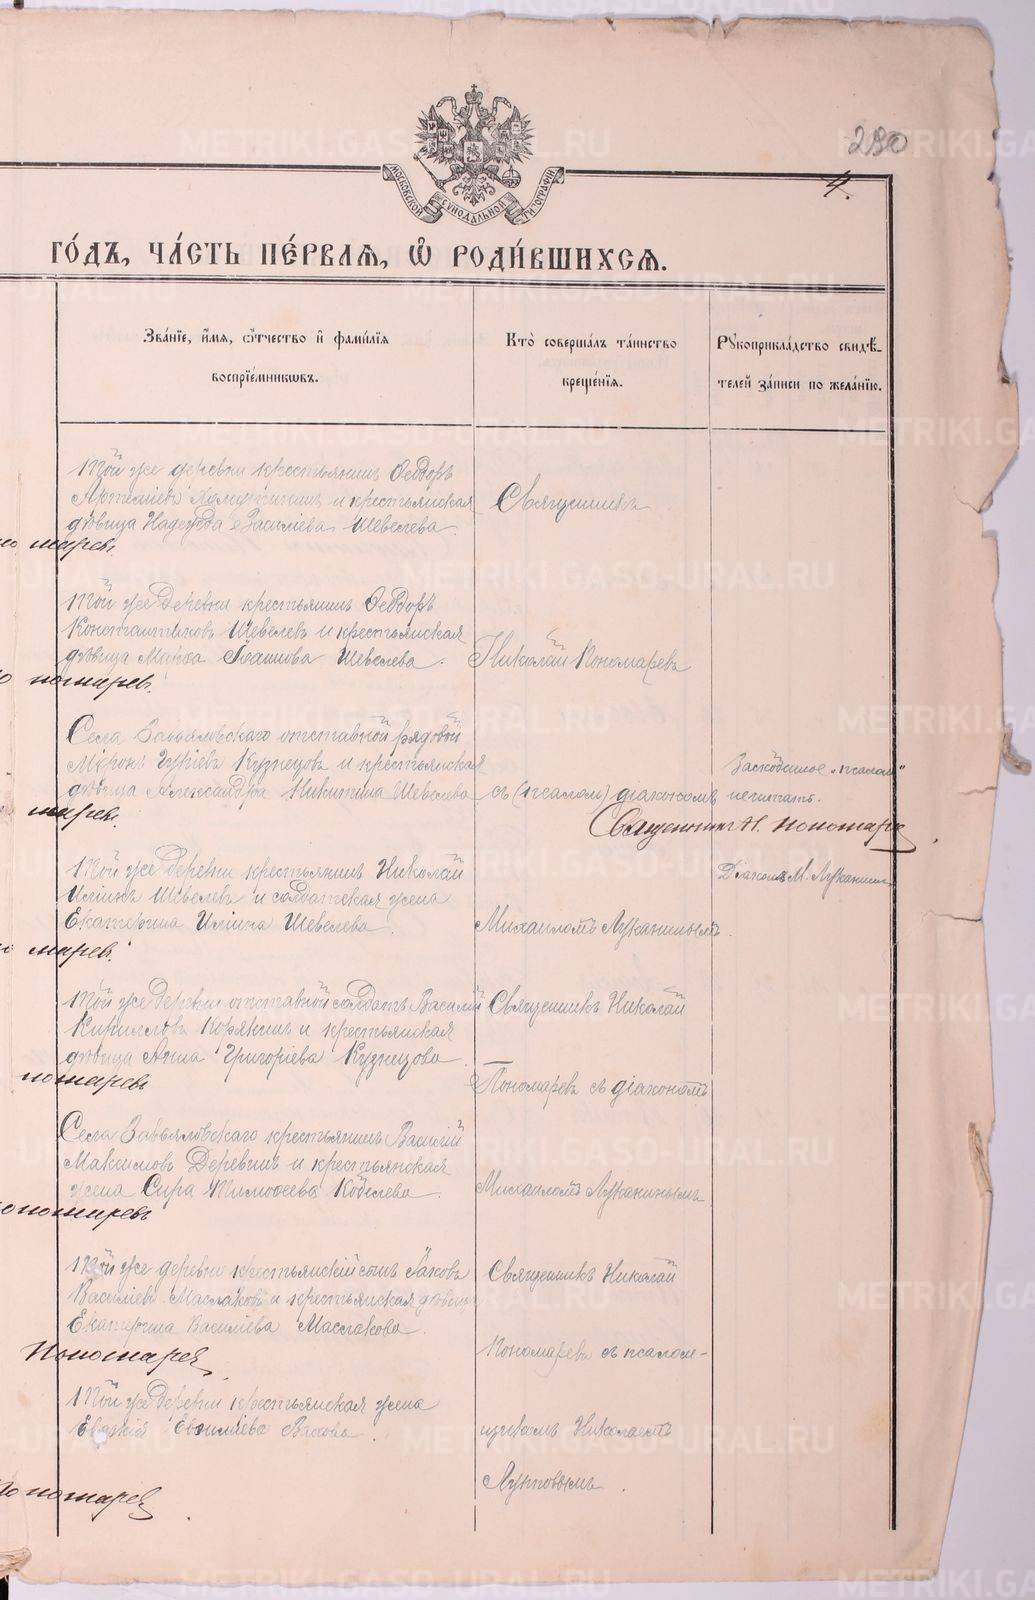 280
4.
МОСКОВСКОЙ СѴНОДАЛЬНОЙ ТИПОГРАФІИ
ГО́ДЪ, ЧА́СТЬ ПЕ́РВАѦ, Ѡ҆ РОДИ́ВШИХСѦ.
Зва́нїе, и҆́мѧ, ѻ҆́тчество и҆ фами́лїѧ
воспрїе́мникѡвъ.
Кто̀ соверша́лъ та́инство
креще́нїѧ.
Рꙋкоприкла́дство свидѣ́-
телей за́писи по жела́нїю.
Той же деревни крестьянинъ Ѳеодоръ
и крестьянская
дѣвица Надежда Василіева Шевелева.
Священникъ
Той же Деревни крестьянинъ Ѳеодоръ
Константиновъ Шевелевъ и крестьянская
дѣвица Марѳа Іоаннова Шевелева.
Николай Пономаревъ
Села Завьяловскаго отставной рядовой
Міронъ Гуріевъ Кузнецовъ и крестьянская
дѣвица Александра Никитина Шевелева
съ (псалом) діакономъ
Заскобенное "псалом"
нечитать.
Священникъ Н. Пономарев
Той же Деревни крестьянинъ Николай
Иліинъ Шевелевъ и солдатская жена
Екатерина Иліина Шевелева.
Михаиломъ Лукаинымъ.
Діаконъ М. Лукаинъ
Той же Деревни отставной солдатъ Василій
Кирилловъ Корякинъ и крестьянская
дѣвица Анна Григоріева Кузнецова
Священникъ Николай
Пономаревъ съ діакономъ
Села Завьяловскаго крестьянинъ Василій
Максимовъ Деревнинъ и крестьянская
жена Сира Тимоѳеева Кобелева.
Михаиломъ Лукаинымъ
Той же деревни крестьянскій сынъ Іаковъ
Василіевъ Маслаковъ и крестьянская дѣвица
Екатерина Василіева Маслакова.
Священникъ Николай
Пономаревъ съ псалом-
Пономарев
Той же Деревни крестьянская жена
щикомъ Николаемъ
Пономарев